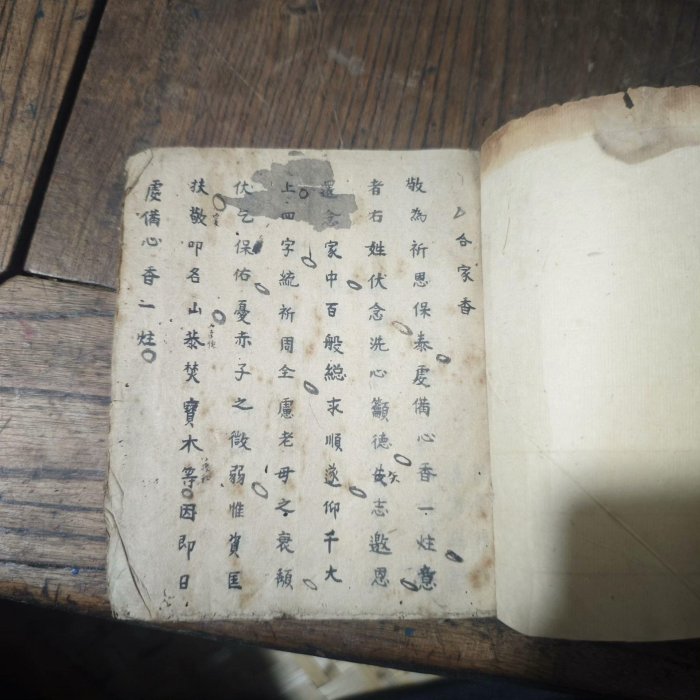 合家香
敬為祈恩保泰虔備心香一炷意
者右姓伏念洗心籲德矢志邀恩
還念家中百般總求順遂仰千大
上四字統祈周全慮老母之衰頹
伏乞保佑憂赤子之微弱惟資匡
扶敬叩名山恭焚寶木等因即日
虔備心香一炷